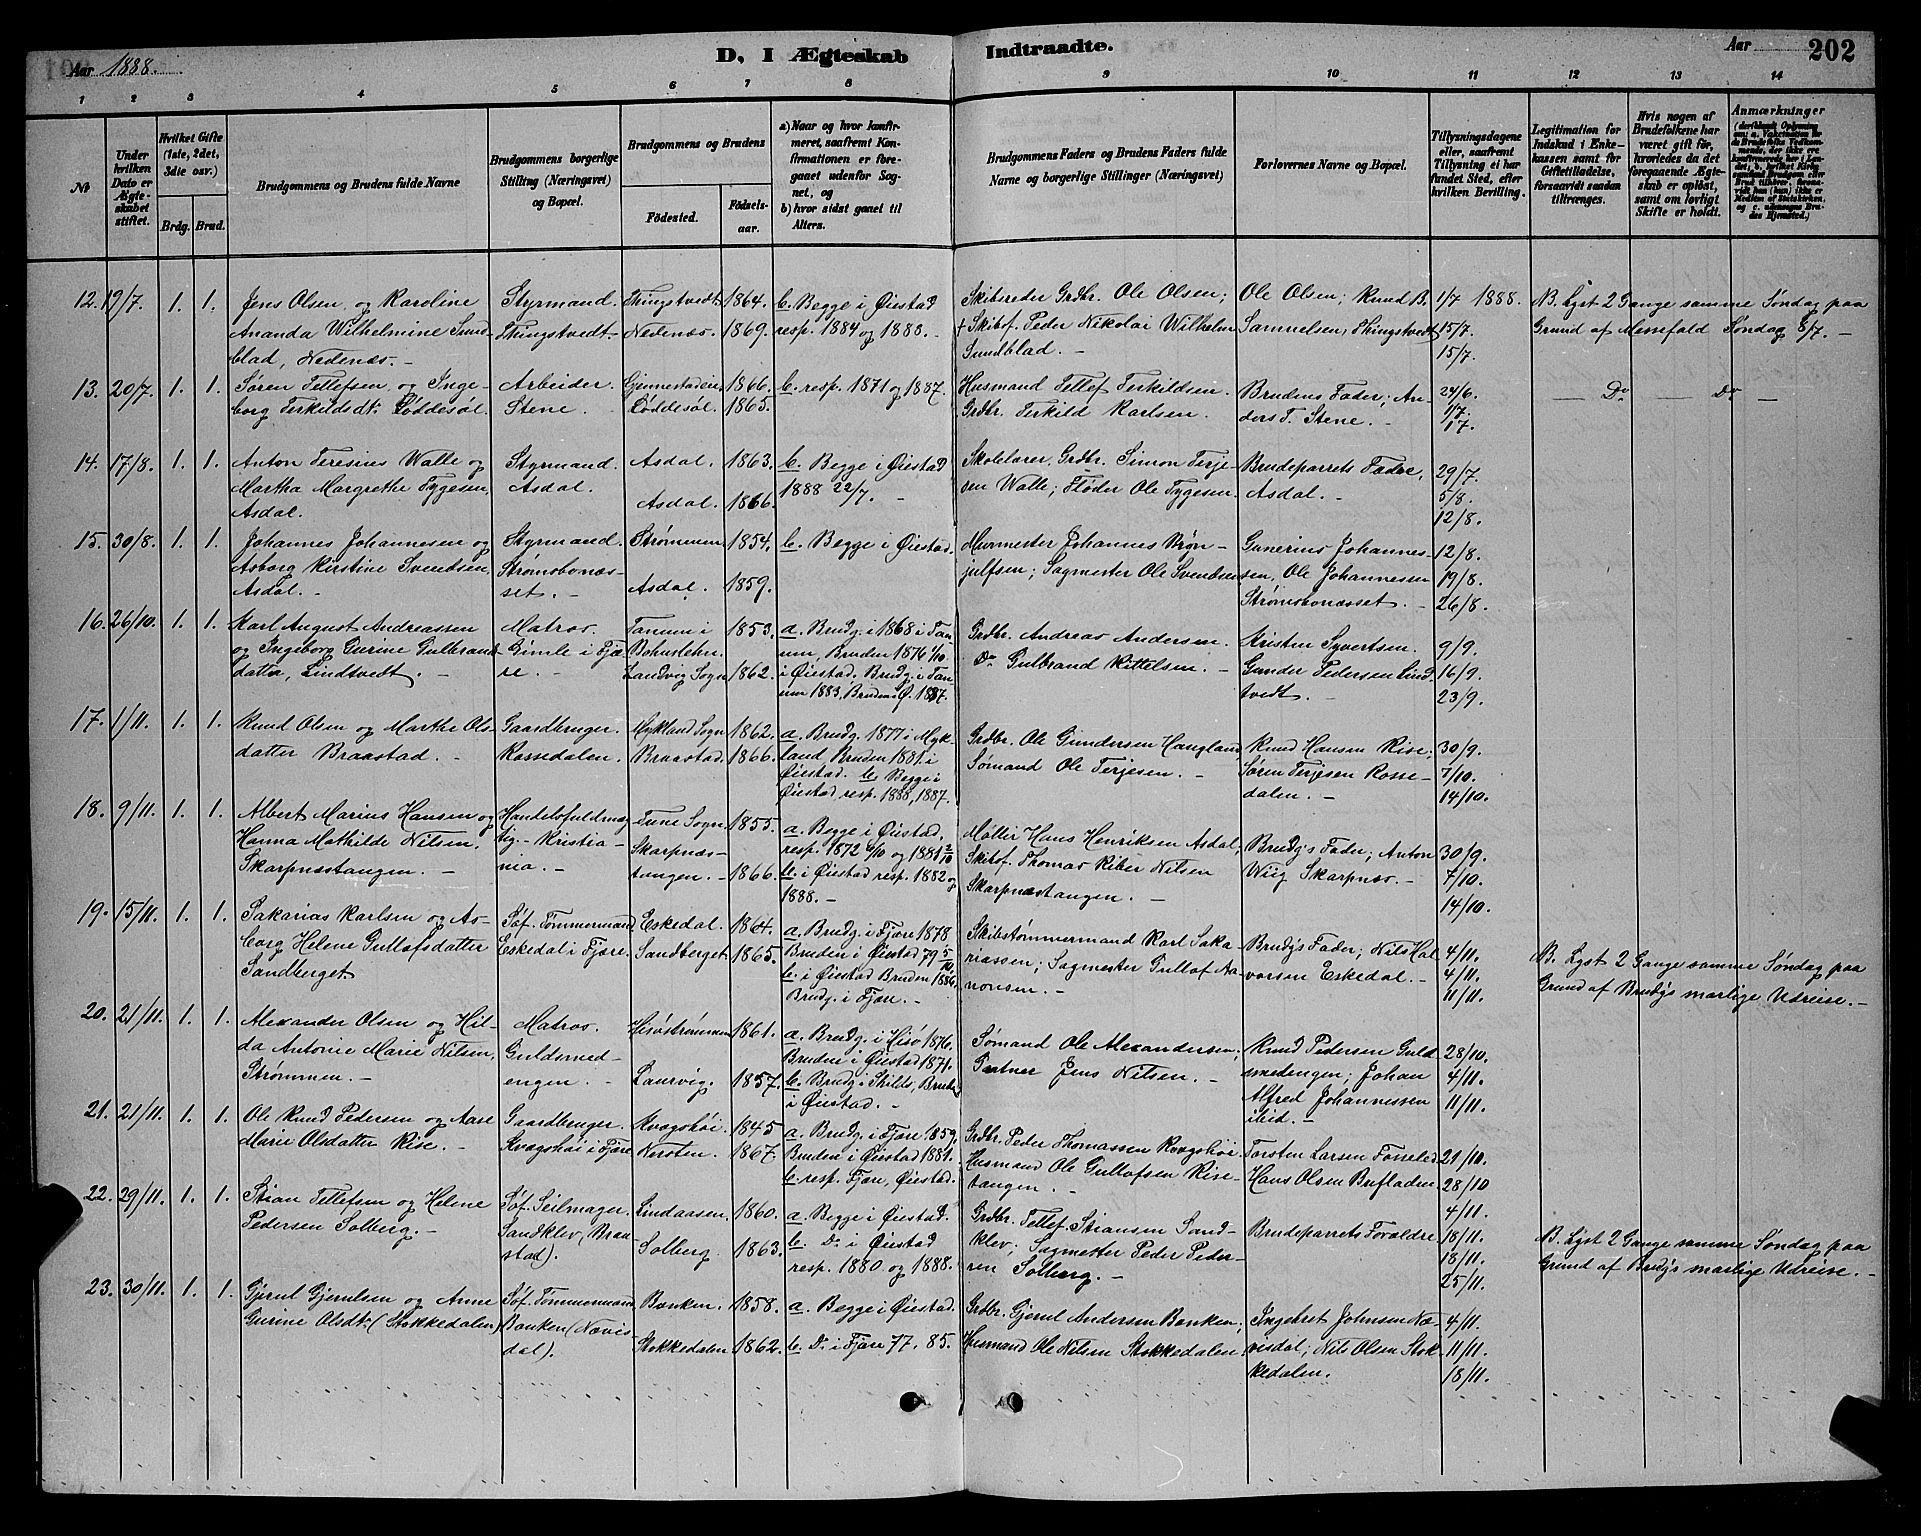 Aar 1888.
D, I Ægteskab Indtraadte.
Aar 202
1 2 3 4 5 6 7 8 9 10 11 12 13 14
№
Under hvilken Dato er Ægteskabet stiftet.
Hvilket Gifte (1ste, 2det, 3die osv.)
Brdg. Brud.
Brudgommens og Brudens fulde Navne
Brudgommens borgerlige Stilling (Næringsvei) og Bopæl.
Brudgommens og Brudens
Fødested. Fødselsaar.
a) Naar og hvor konfirmeret, saafremt Konfirmationen er foregaaet udenfor Sognet, og
b) hvor sidst gaaet til Alters.
Brudgommens Faders og Brudens Faders fulde Navne og borgerlige Stillinger (Næringsvei)
Forlovernes Navne og Bopæl.
Tillysningsdagene eller, saafremt Tillysning ei har fundet Sted, efter hvilken Bevilling.
Legitimation for Indskud i Enkekassen samt for Giftetilladelse, forsaavidt saadan tiltrænges.
Hvis nogen af Brudefolkene har været gift før, hvorledes da det foregaaende Ægteskab er opløst, samt om lovligt Skifte er holdt.
Anmærkninger
12. 19/7. 1. 1. Jens Olsen og Karoline Styrmand. Thingstvedt. 1864. b. Begge i Øiestad Skibsreder Grdbr. Ole Olsen; Ole Olsen; Knud B. 1/7 1888. NB. Lyst 2 Gange samme Søndag paa
Ananda Wilhelmine Sundblad, Nedenæs. Thingstvedt. Nedenæs. 1869. resp. 1884 og 1888. † Skibsf. Peder Nikolai Wilhelm Sundblad. Samuelsen, Thingstvedt 15/7. 15/7. Grund af Messefald Søndag 8/7.
13. 20/7. 1. 1. Søren Tellefsen og Inge- Arbeider. 1866. b. resp. 1871 og 1887. Husmand Tellef Terkildsen. Brudens Fader; An- 24/6. Do Do
borg Terkildsdt. Løddesøl. Stene. Løddesøl. 1865. Grdbr. Terkild Karlsen. ders T. Stene. 1/7. 1/7.
14. 17/8. 1. 1. Anton Teresius Walle og Styrmand. Asdal. 1863. b. Begge i Øiestad Skolelærer, Grdbr. Simon Terje- Brudeparrets Fædre, 29/7.
Martha Margrethe Tygesen, Asdal. Asdal. Asdal. 1866. 1888 22/7. sen Walle; Fløder Ole Tygesen. Asdal. 5/8. 12/8.
15. 30/8. 1. 1. Johannes Johannesen og Styrmand. Strømmen. 1854. b. Begge i Øiestad. Murmester Johannes Brÿn- Gunerius Johannes- 12/8.
Asborg Kirstine Svendsen, Asdal. Strømsbonæsset. Asdal. 1859. julfsen; Sagmester Ole Svendsen sen, Ole Johannessen Strømsbonæsset. 19/8. 26/8.
16. 26/10. 1. 1. Karl August Andreassen Matros. Tanum i 1853. a. Brudg. i 1868 i Ta- Grdbr. Andreas Andersen. Kristen Syvertsen. 9/9.
og Ingeborg Gurine Gulbrands- Gimle i Fjæ- Bohuslehn. num, Bruden 1876 1/10 Do Gulbrand Kittelsen. Gunder Pedersen Lind- 16/9.
datter, Lindtvedt. re. Landvig Sogn 1862. i Øiestad. Brudg. i Ta- tvedt. 23/9.
num 1883, Bruden i Ø. 1887.
17. 1/11. 1. 1. Knud Olsen og Marthe Ols- Gaardbruger. Mykland Sogn 1862. a. Brudg. 1877 i Myk- Grdbr. Ole Gundersen Haugland, Knud Hansen Rise; 30/9.
datter Braastad. Rossedalen. Braastad. 1866. land Bruden 1881 i Sømand Ole Terjesen. Søren Terjesen Rosse- 7/10.
Øiestad. b. Begge i dalen. 14/10.
Øiestad resp. 1888, 1887.
18. 9/11. 1. 1. Albert Marius Hansen og Handelsfuldmæg- Tune Sogn. 1855. a. Begge i Øiestad. Møller Hans Henriksen Asdal, Brudg's Fader; Anton 30/9.
Hanna Mathilde Nilsen, tig. Kristia- Skarpnæs- resp. 1872 6/10 og 1881 2/10 Skibsf. Thomas Riber Nilsen Wiig Skarpnæs. 7/10.
Skarpnæstangen. nia. tangen. 1866. b. i Øiestad resp. 1882 og 1888. Skarpnæstangen. 14/10.
19. 15/11. 1. 1. Sakarias Karlsen og As- Søf. Tømmermand Eskedal. 1864. a. Brudg. i Fjære 1878 Skibstømmermand Karl Saka- Brudg's Fader; Nils Hal- 4/11. NB. Lyst 2 Gange samme Søndag paa
borg Helene Gullofsdatter Eskedal i Fjære. Sandberget 1865. Bruden i Øiestad 79 5/10 riassen; Sagmester Gullof Aa- vorsen Eskedal. 4/11. Grund af Brudg's snarlige Udreise.
Sandberget b. i Øiestad Bruden 1886, Brudg. i Fjære. nonsen. 11/11.
20. 21/11. 1. 1. Alexander Olsen og Hil- Matros. Hisøstrømmen 1861. a. Brudg. i Hisø 1876, Sømand Ole Alexandersen; Knud Pedersen Guld- 28/10.
da Antonie Marie Nilsen, Guldsmed- Bruden i Øiestad 1871. Gartner Jens Nilsen. smedengen; Johan 4/11.
Strømmen. engen. Laurvig. 1857. b. Brudg. Skilsø, Bruden i Øiestad. Alfred Johannessen ibid. 11/11.
21. 21/11. 1. 1. Ole Knud Pedersen og Aase Gaardbruger. Kragshøi. 1845 a. Brudg. i Fjære 1859. Grdbr. Peder Thomassen Kragshøi Torsten Larsen 21/10.
Marie Olsdatter Rise. Kragshøi i Fjære Nersten. 1867. Bruden i Øiestad 1881. Husmand Ole Gullofsen Rise- Hans Olsen Bufladen. 28/10
b. resp. Fjære, Øiestad. tangen. 4/11.
22. 29/11. 1. 1. Stian Tellefsen og Helene Søf. Seilmager. Lindaasen. 1860. a. Begge i Øiestad. Grdbr. Tellef Stiansen Sand- Brudeparrets Forældre 18/11. NB. Lyst 2 Gange samme Søndag paa
Pedersen Solberg. Sandklev (Braastad). Solberg. 1863. b. Do i Øiestad klev; Sagmester Peder Peder- 18/11. Grund af Brudg's snarlige Udreise.
resp. 1880 og 1888. sen Solberg. 25/11.
23. 30/11. 1. 1. Gjerul Gjerulsen og Anne Søf. Tømmermand Banken. 1858. a. Begge i Øiestad. Grdbr. Gjerul Andersen Banken; Ingebret Johnsen Næ- 4/11.
Gurine Olsdt. (Stokkedalen) Banken (Nævisdal). Stokkedalen 1862. b. Do i Fjære 77. 85. Husmand Ole Nilsen Stokkedalen visdal; Nils Olsen Stok- 11/11.
kedalen. 18/11.